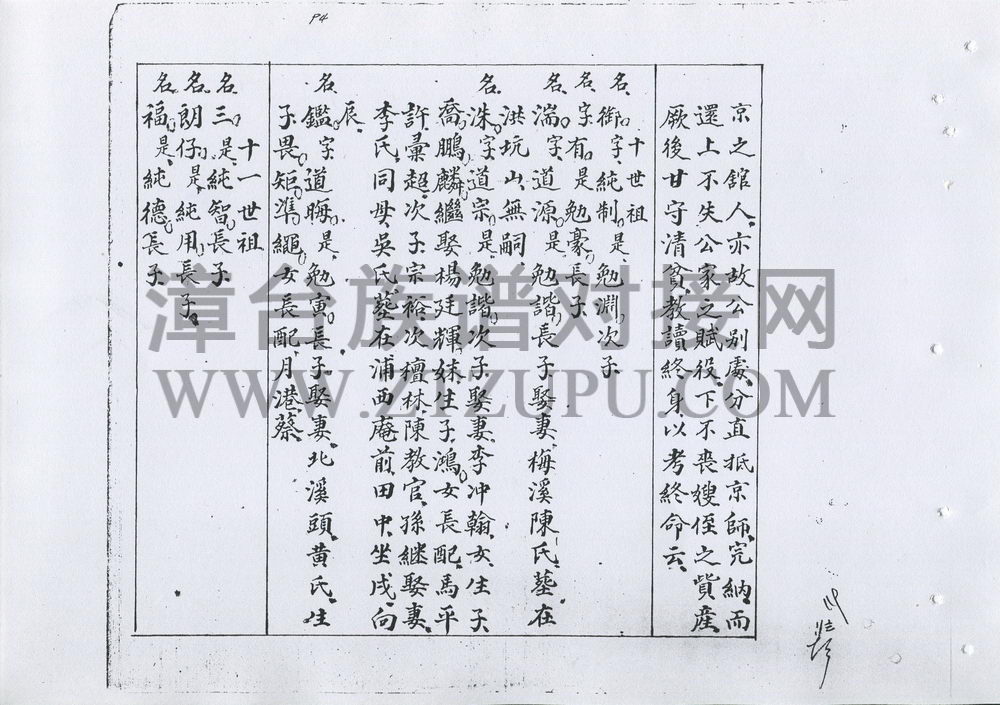 P4
京之舘人、亦故公別處、分直抵京師、完納而
還上不失公家之賦役、下不喪嫂侄之貲產、
厥後甘守清貧、教讀終身以考終命云、
十世祖
名御、字純制、是勉淵次子
名字有、是勉豪長子、
名湍、字道源、是勉諧長子娶妻、梅溪陳氏、塟在
洪坑山、無嗣、
名洙、字道宗、是勉諧次子、娶妻、李冲翰、女生子
喬、鵬、麟、繼娶楊廷輝、妹、生子、鴻、女長配、馬平
許彙超、次子宗裕、次檀林、陳教官、孫継娶妻、
李氏、同母、吳氏、塟在浦西庵前、田中、坐戌、向
辰、
名鑑、字道晦、是勉寅、長子、娶妻、北溪頭、黄氏、生
子畏、矩、準、繩、女長配、月港、蔡、
十一世祖
名三、是純智、長子、
名朗仔、是純用、長子、
名福、是純德、長子、
漳台族谱对接网
WWW.ZTZUPU.COM